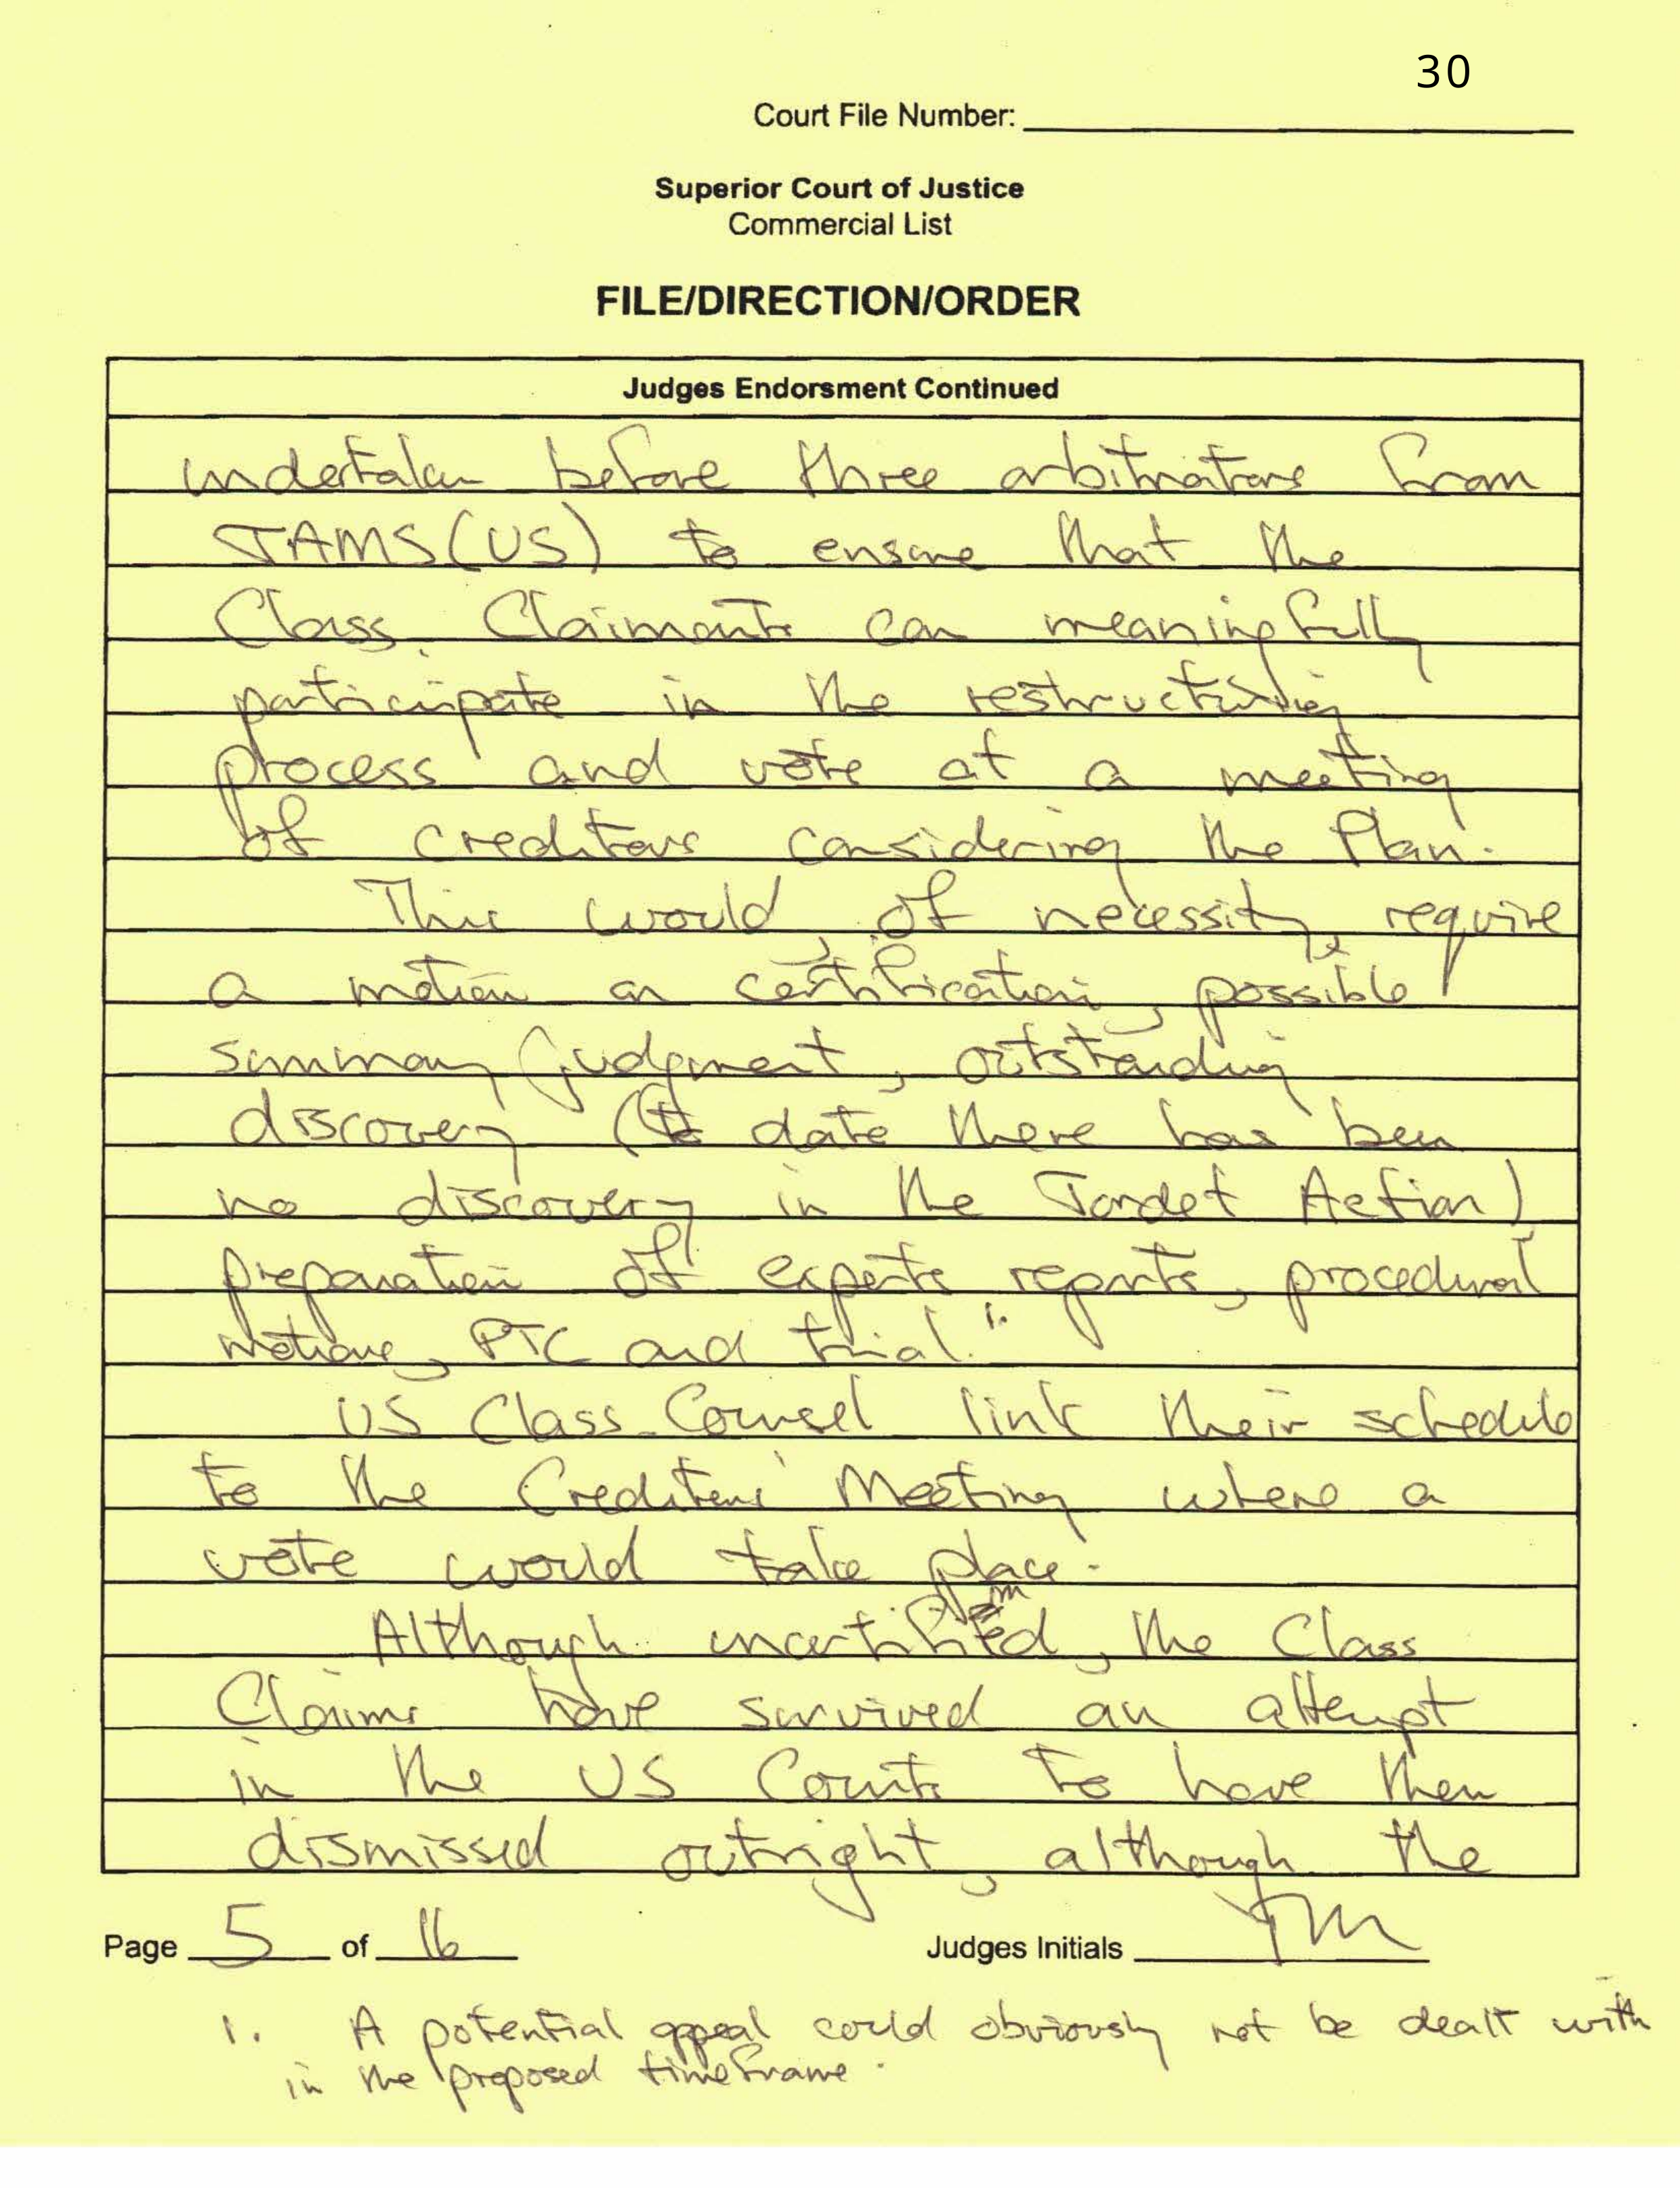 30
Court File Number:
Superior Court of Justice
Commercial List
FILE/DIRECTION/ORDER
Judges Endorsment Continued
undertaken before three arbitrators from
JAMS (US) to ensure that the
Class Claimants can meaningfully
participate in the restructuring
process and vote at a meeting
of creditors considering the Plan.
This would, of necessity, require
a motion on certification, possible
summary judgment, outstanding
discovery (to date there has been
no discovery in the Tordet Action)
preparation of experts reports, procedural
motions, PTC and trial. 1.
US Class Counsel link their schedule
to the Creditors' Meeting where a
vote would take place.
Although uncertified, the Class
Claims have survived an attempt
in the US Courts to have them
dismissed outright, although the
Page 5 of 16
Judges Initials
1. A potential appeal could obviously not be dealt with
in the proposed timeframe.